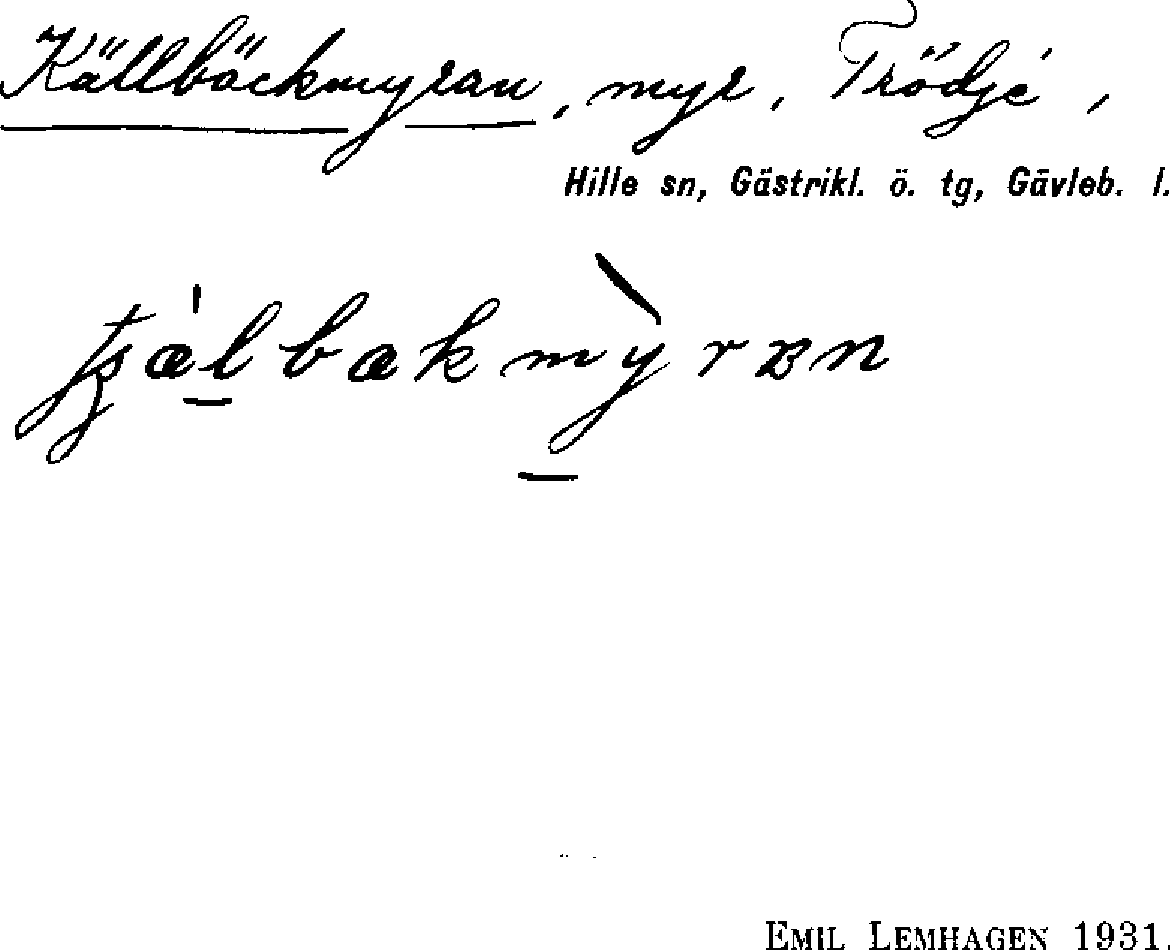 Källbäckmyran, myr, Trödje,
Hille sn, Gästrikl. ö. tg, Gävleb. l.
EMIL LEMHAGEN 1931.